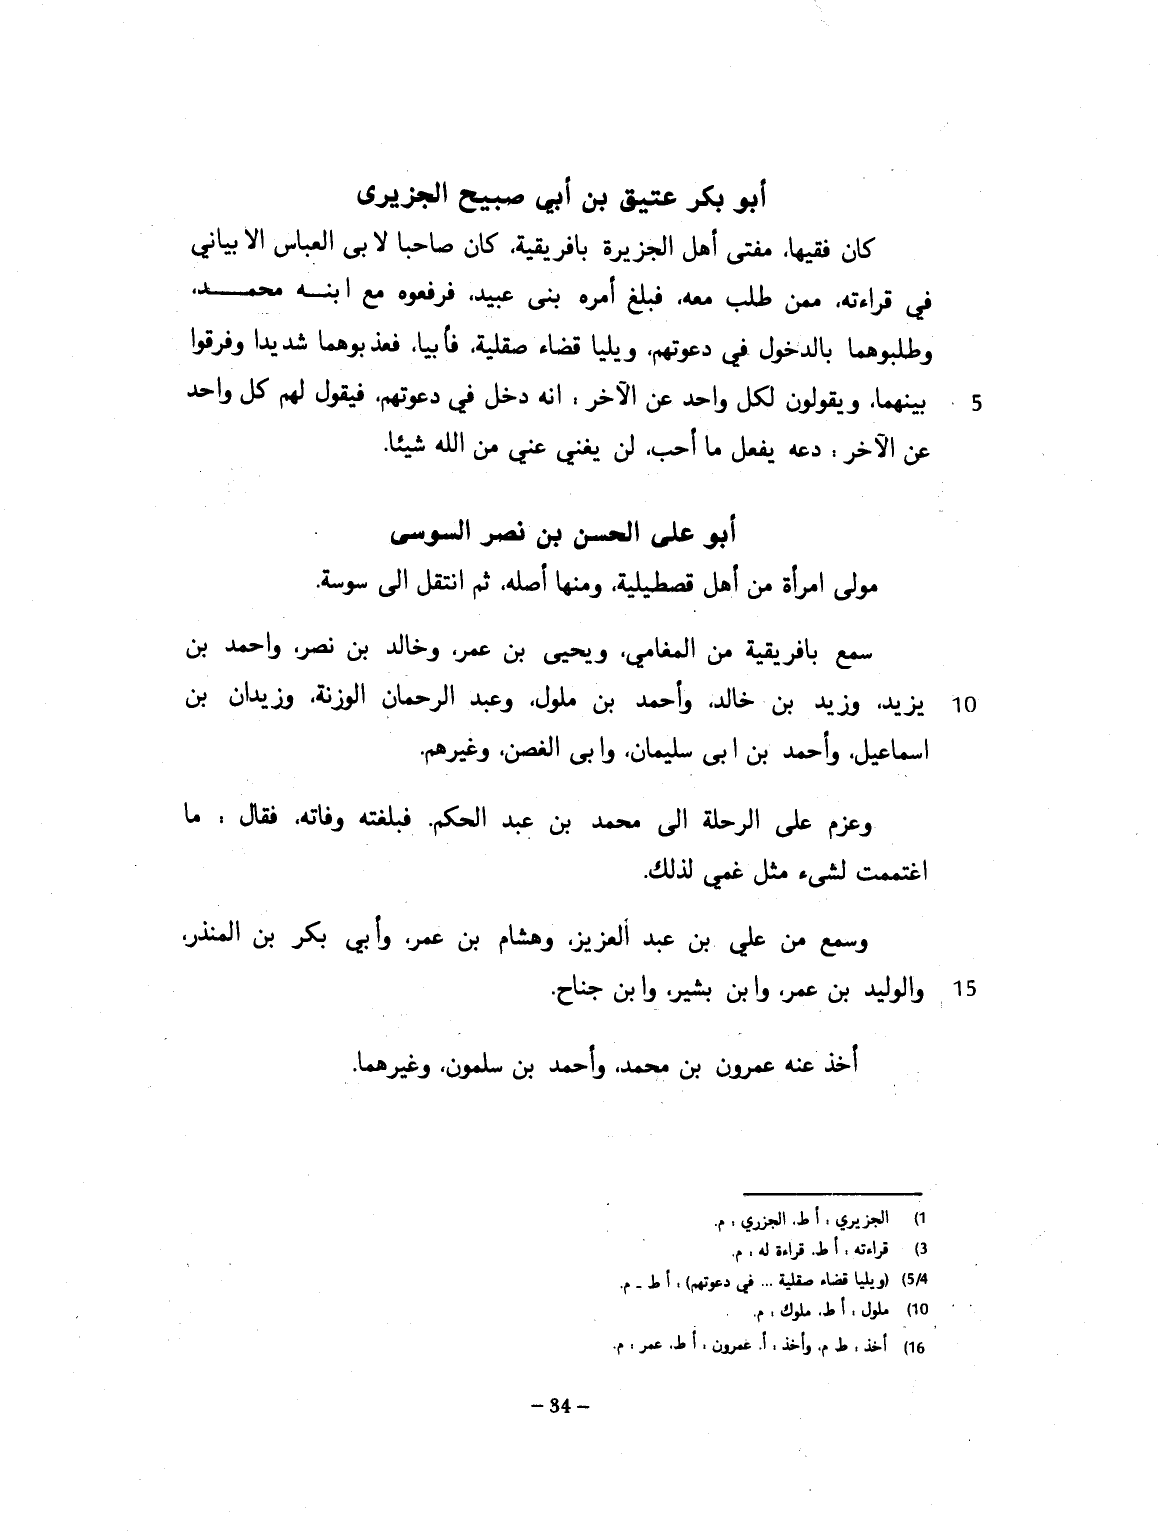 أبو بكر عتيق بن أبي صبيح الجزيرى
كان فقيها، مفتى أهل الجزيرة بافريقية، كان صاحبا لابى العباس الابياني
في قراءته، ممن طلب معه، فبلغ أمره بنى عبيد، فرفعوه مع ابنه محمد،
وطلبوهما بالدخول في دعوتهم، ويليا قضاء صقلية، فأبيا، فعذبوهما شديدا وفرقوا
5 بينهما، ويقولون لكل واحد عن الآخر : انه دخل في دعوتهم، فيقول لهم كل واحد
عن الآخر : دعه يفعل ما أحب، لن يغني عني من الله شيئا.
أبو على الحسن بن نصر السوسى
مولى امرأة من أهل قصطيلية، ومنها أصله، ثم انتقل الى سوسة.
سمع بافريقية من المغامي، ويحيى بن عمر، وخالد بن نصر، واحمد بن
10 يزيد، وزيد بن خالد، وأحمد بن ملول، وعبد الرحمان الوزنة، وزيدان بن
اسماعيل، وأحمد بن ابى سليمان، وابى الغصن، وغيرهم.
وعزم على الرحلة الى محمد بن عبد الحكم. فبلغته وفاته، فقال : ما
اغتممت لشىء مثل غمي لذلك.
وسمع من علي بن عبد ألعزيز، وهشام بن عمر، وأبي بكر بن المنذر،
15 والوليد بن عمر، وابن بشير، وابن جناح.
أخذ عنه عمرون بن محمد، وأحمد بن سلمون، وغيرهما.
1) الجزيري : أ ط، الجزري : م.
3) قراءته : أ ط، قراءة له : م.
5/4) (ويليا قضاء صقلية ... في دعوتهم) : أ ط - م.
10) ملول : أ ط، ملوك : م.
16) أخذ : ط م، وأخذ : أ. عمرون : أ ط، عمر : م.
– 34 –